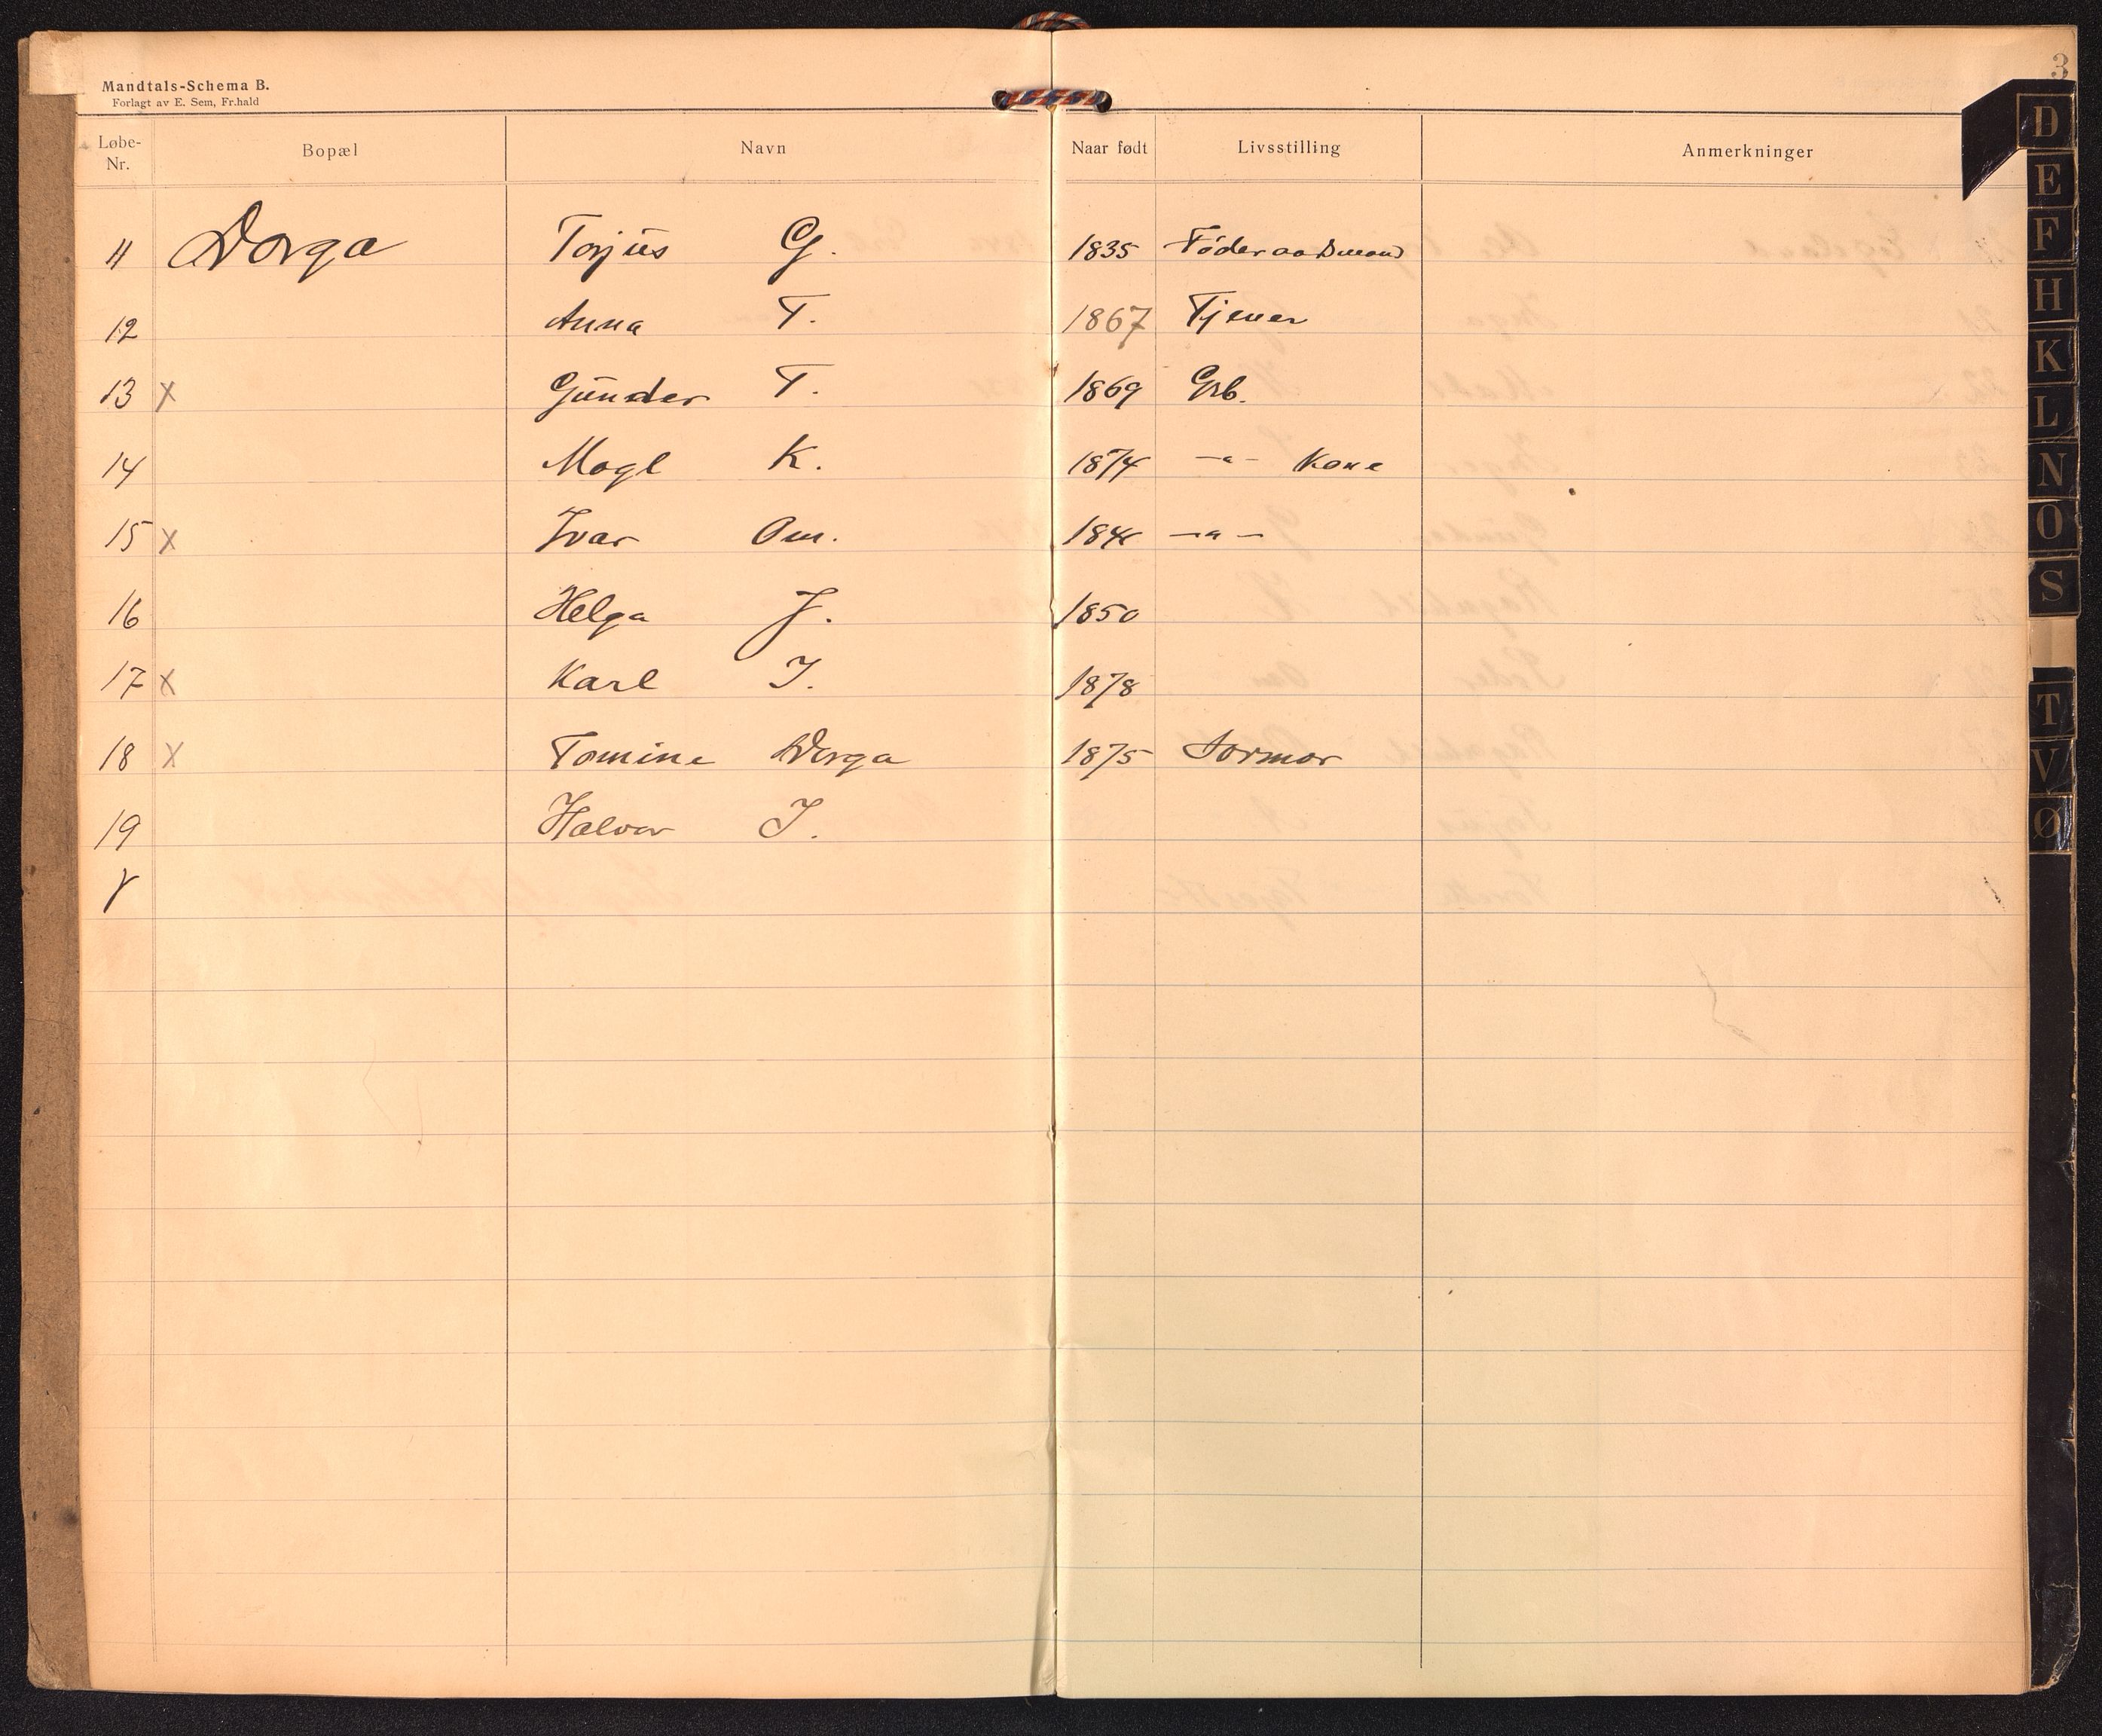 3
Mandtals-Schema B.
Forlagt av E. Sem, Fr.hald
Løbe-Nr. Bopæl Navn Naar født Livsstilling Anmerkninger
11 Dorga Torjus G. 1835 Føderaadsmand
12 Anna T. 1867 Tjener
13 x Gunder T. 1869 Grb.
14 Magl K. 1874 —"— Kone
15 x Ivar Om. —"—
16 Helga J. 1850
17 x Karl I. 1878
18 x Tomine Dorga 1875 Jormor
19 Halvor I.
D
E
F
H
K
L
N
O
S
T
V
Ø